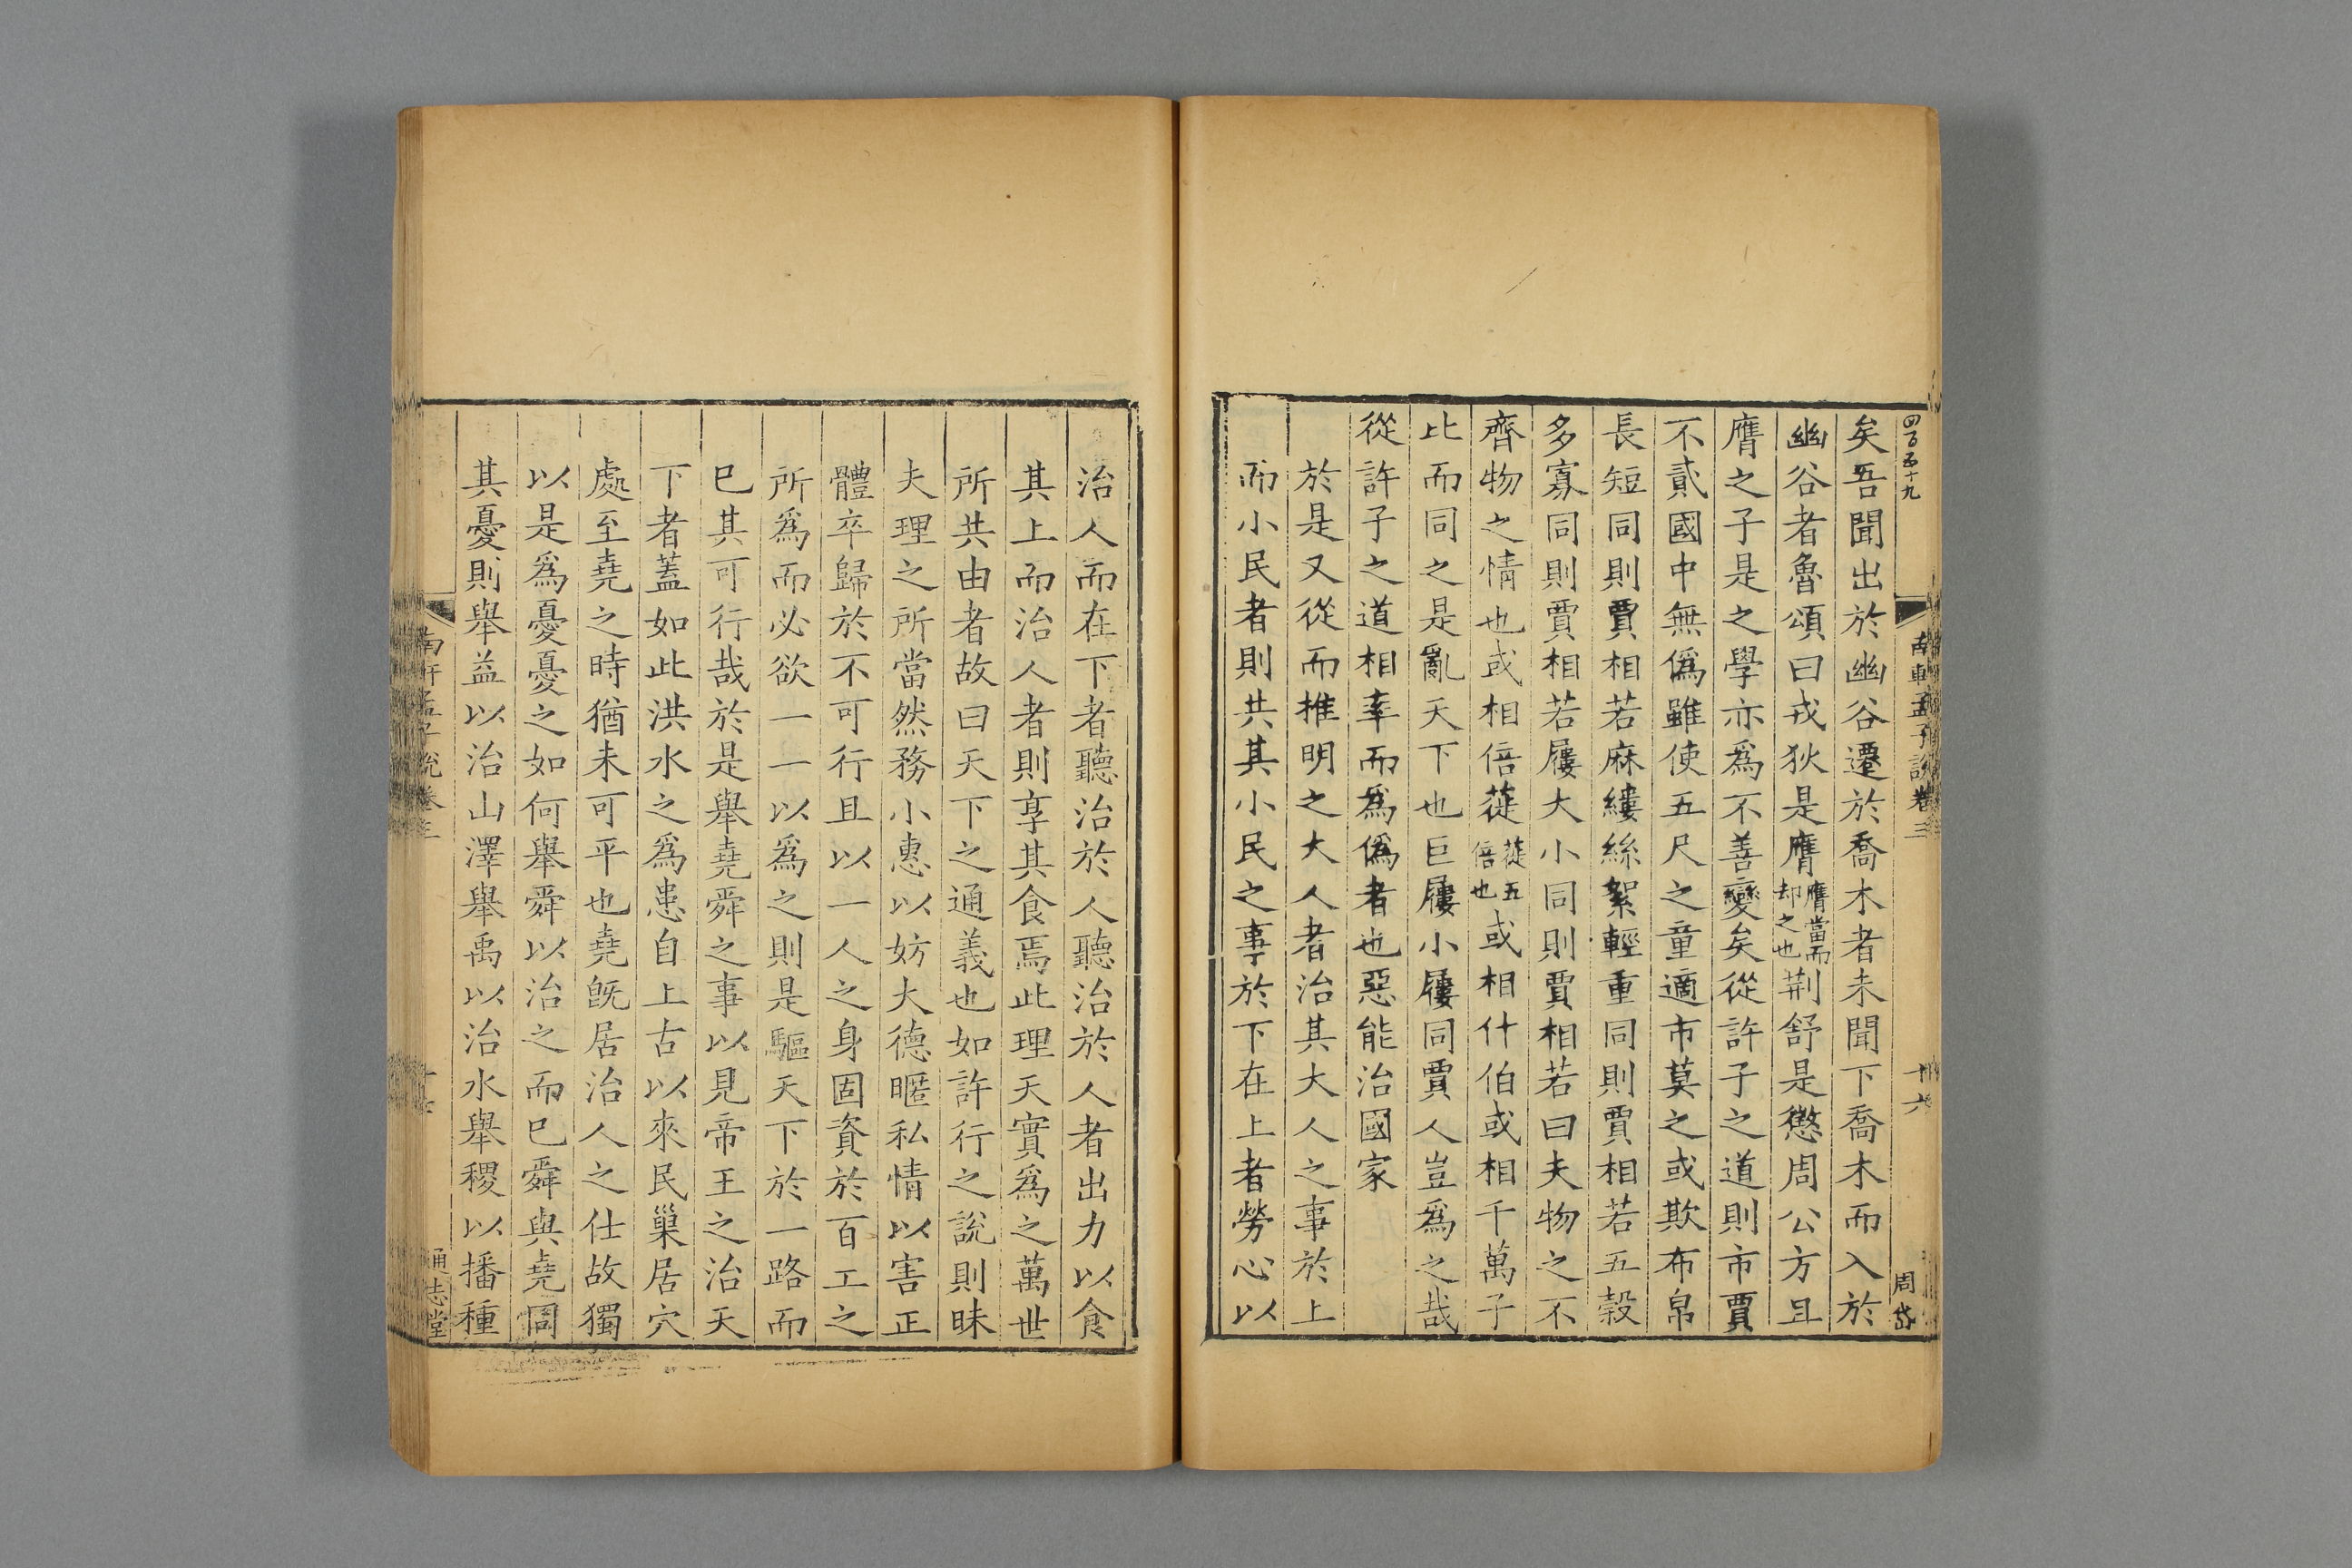 四百五十九
南軒孟子說卷三
十六
周岱
矣吾聞出於幽谷遷於喬木者未聞下喬木而入於
幽谷者魯頌曰戎狄是膺膺當而却之也荆舒是懲周公方且
膺之子是之學亦爲不善變矣從許子之道則市賈
不貳國中無僞雖使五尺之童適市莫之或欺布帛
長短同則賈相若麻縷絲絮輕重同則賈相若五穀
多寡同則賈相若屨大小同則賈相若曰夫物之不
齊物之情也或相倍蓰蓰五倍也或相什伯或相千萬子
比而同之是亂天下也巨屨小屨同賈人豈爲之哉
從許子之道相率而爲僞者也惡能治國家
於是又從而推明之大人者治其大人之事於上
而小民者則共其小民之事於下在上者勞心以
治人而在下者聽治於人聽治於人者出力以食
其上而治人者則享其食焉此理天實爲之萬世
所共由者故曰天下之通義也如許行之說則昧
夫理之所當然務小惠以妨大德暱私情以害正
體卒歸於不可行且以一人之身固資於百工之
所爲而必欲一一以爲之則是驅天下於一路而
已其可行哉於是舉堯舜之事以見帝王之治天
下者蓋如此洪水之爲患自上古以來民巢居穴
處至堯之時猶未可平也堯旣居治人之仕故獨
以是爲憂憂之如何舉舜以治之而已舜與堯同
其憂則舉益以治山澤舉禹以治水舉稷以播種
南軒孟子說卷三
通志堂